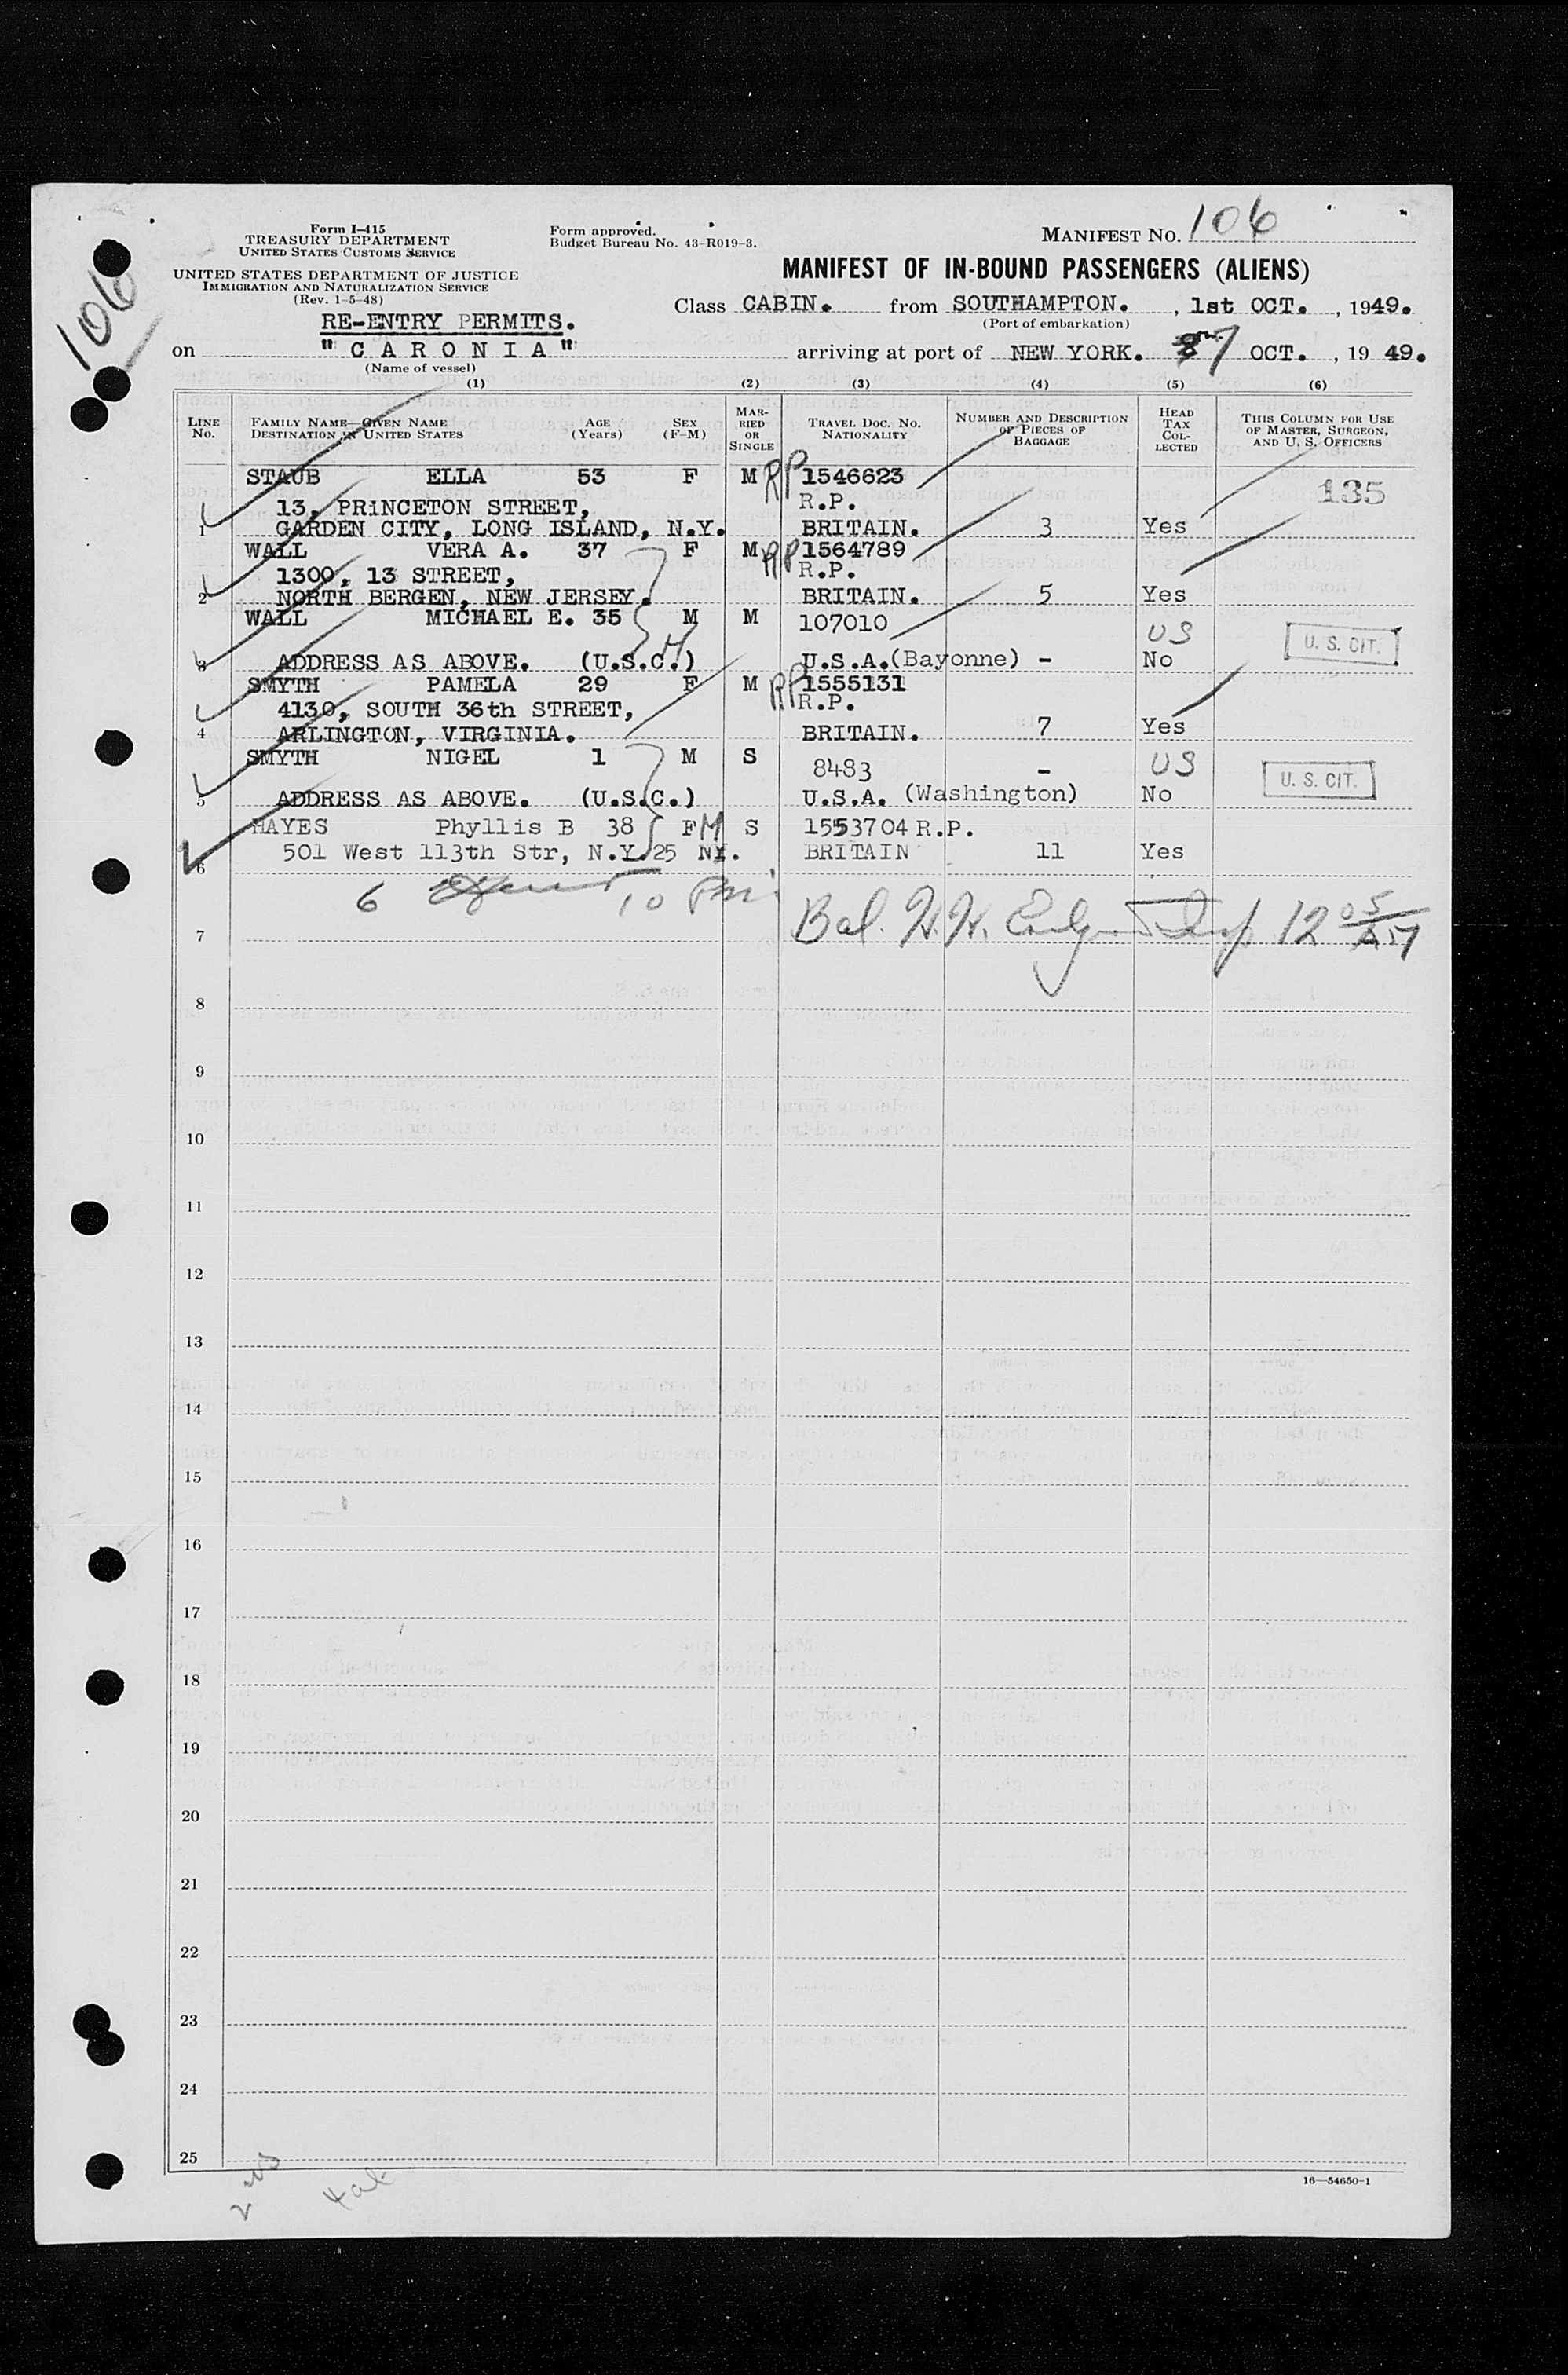 106
Form I-415
TREASURY DEPARTMENT
UNITED STATES CUSTOMS SERVICE
UNITED STATES DEPARTMENT OF JUSTICE
IMMIGRATION AND NATURALIZATION SERVICE
(Rev. 1-5-48)
Form approved.
Budget Bureau No. 43-R019-3.
MANIFEST NO. 106
MANIFEST OF IN-BOUND PASSENGERS (ALIENS)
Class CABIN. from SOUTHAMPTON. , 1st OCT. , 1949.
(Port of embarkation)
RE-ENTRY PERMITS.
on "CARONIA" arriving at port of NEW YORK. 7 OCT. , 19 49.
(Name of vessel)
(1) (2) (3) (4) (5) (6)
LINE No.
FAMILY NAME—GIVEN NAME
DESTINATION IN UNITED STATES
AGE (Years)
SEX (F-M)
MARRIED OR SINGLE
TRAVEL DOC. NO. NATIONALITY
NUMBER AND DESCRIPTION OF PIECES OF BAGGAGE
HEAD TAX COLLECTED
THIS COLUMN FOR USE OF MASTER, SURGEON, AND U. S. OFFICERS
STAUB ELLA 53 F M RP 1546623 135
13, PRINCETON STREET, R.P.
1 GARDEN CITY, LONG ISLAND, N.Y. BRITAIN. 3 Yes
WALL VERA A. 37 F M RP 1564789
1300, 13 STREET, R.P.
2 NORTH BERGEN, NEW JERSEY. BRITAIN. 5 Yes
WALL MICHAEL E. 35 M M 107010 US U. S. CIT.
3 ADDRESS AS ABOVE. (U.S.C.) M U.S.A.(Bayonne) - No
SMYTH PAMELA 29 F M RP 1555131
4130, SOUTH 36th STREET, R.P.
4 ARLINGTON, VIRGINIA. BRITAIN. 7 Yes
SMYTH NIGEL 1 M S 8483 - US U. S. CIT.
5 ADDRESS AS ABOVE. (U.S.C.) U.S.A. (Washington) No
HAYES Phyllis B 38 F M S 1553704 R.P.
6 501 West 113th Str, N.Y. 25 NY. BRITAIN 11 Yes
6 10
7 Bal. 12 05
8
9
10
11
12
13
14
15
16
17
18
19
20
21
22
23
24
25
2 US
16—54650-1